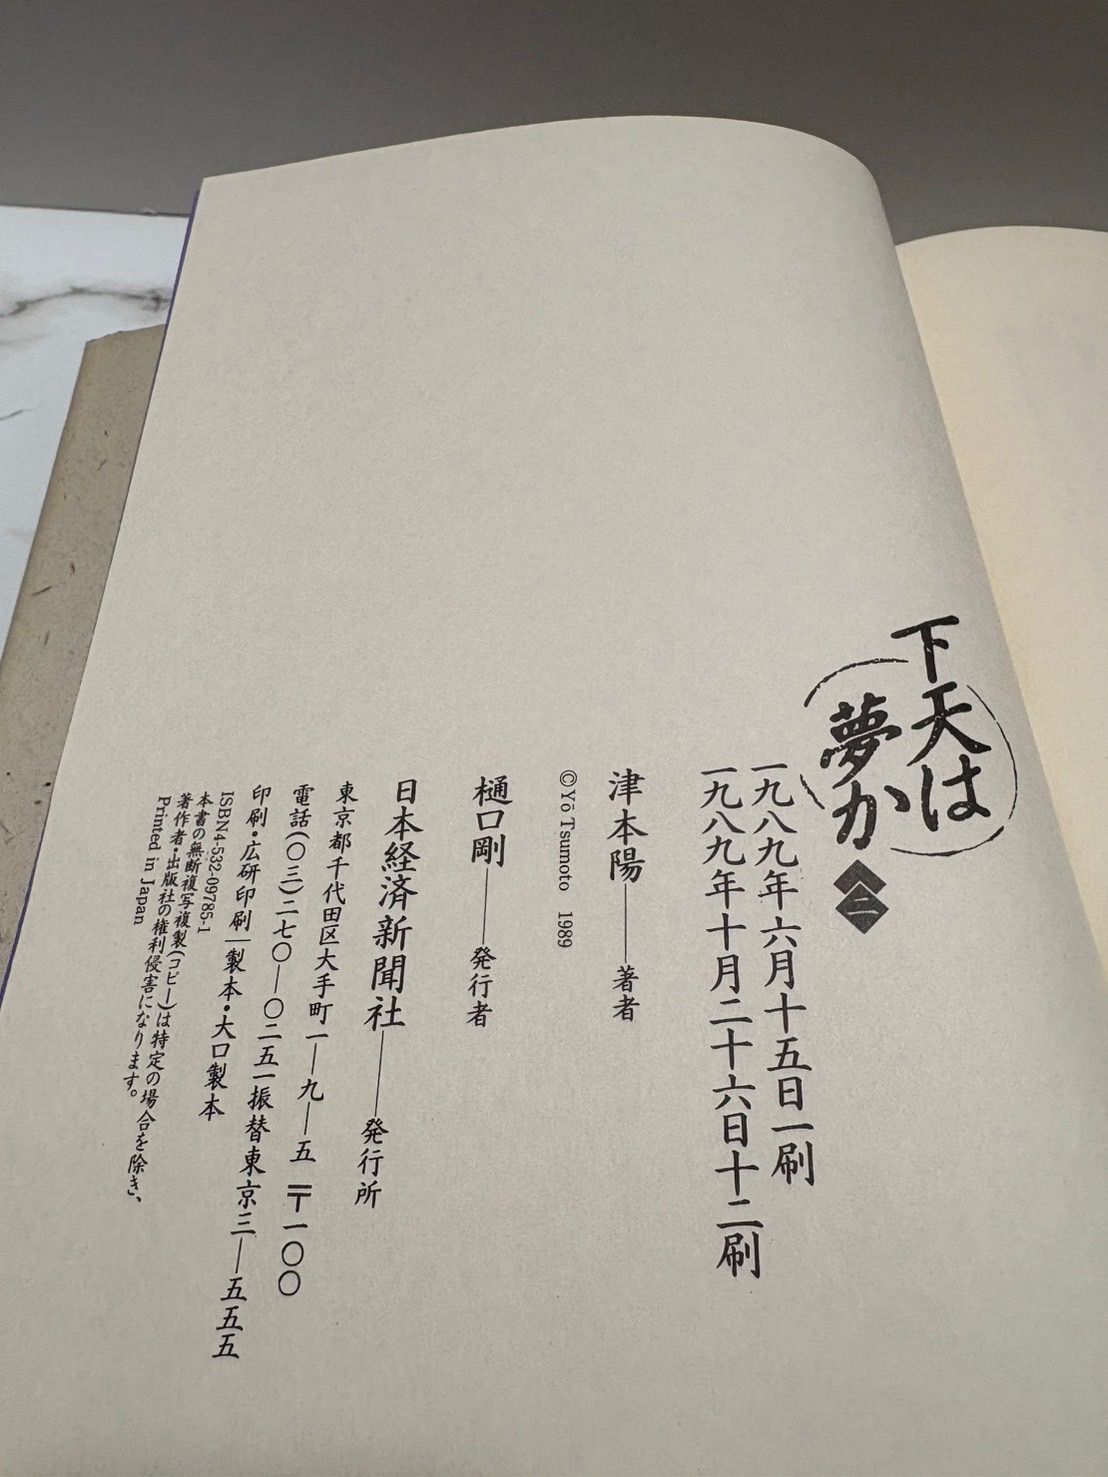 下天は
夢か
二
一九八九年六月十五日一刷
一九八九年十月二十六日十二刷
津本陽――著者
©Yō Tsumoto 1989
樋口剛――発行者
日本経済新聞社――発行所
東京都千代田区大手町一―九―五 〒一〇〇
電話(〇三)二七〇―〇二五一振替東京三―五五五
印刷・広研印刷│製本・大口製本
ISBN4-532-09785-1
本書の無断複写複製(コピー)は特定の場合を除き、
著作者・出版社の権利侵害になります。
Printed in Japan